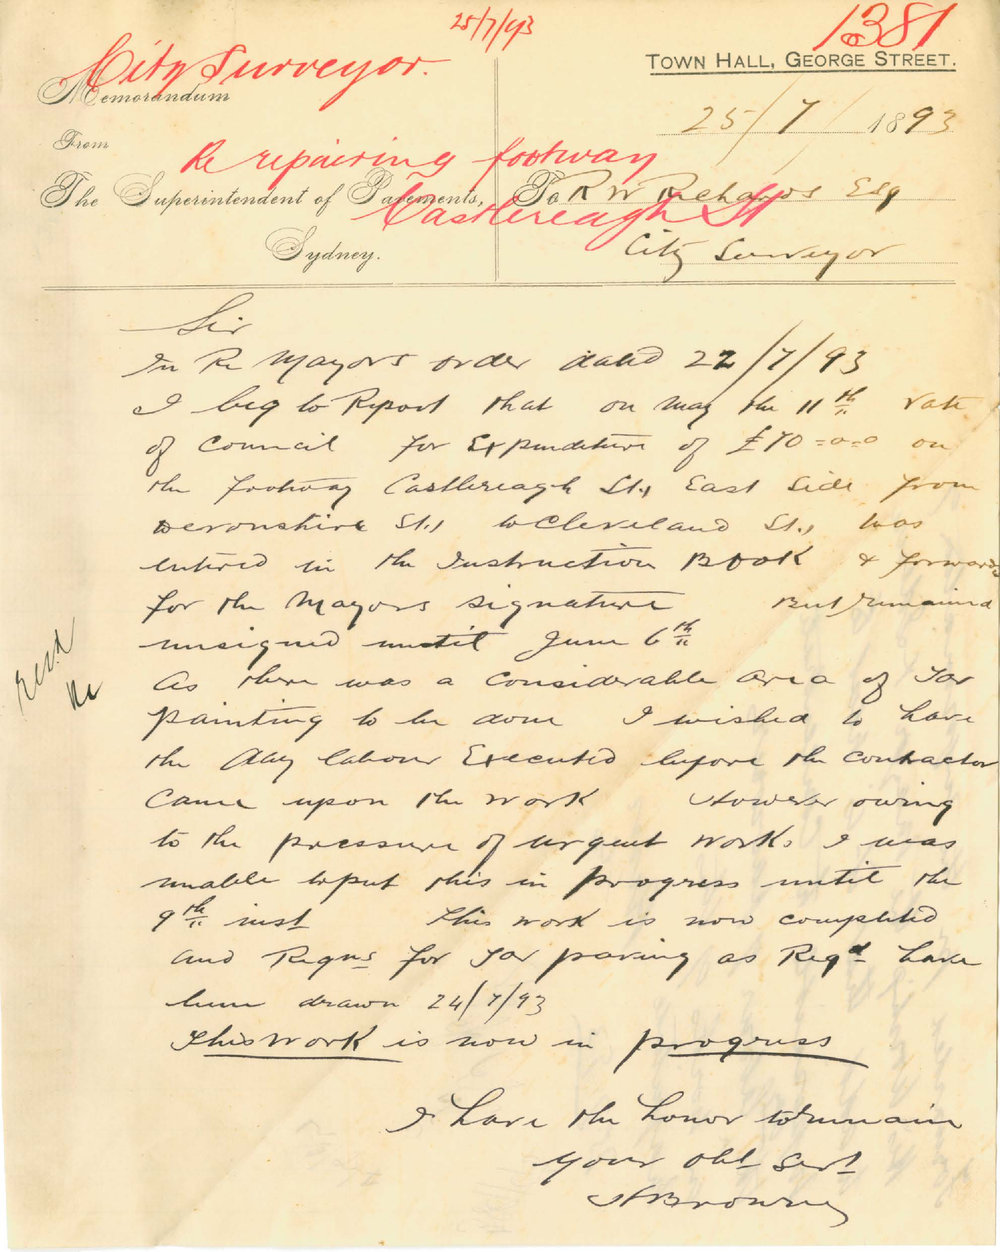 25/7/93
1381
City Surveyor.
TOWN HALL, GEORGE STREET.
Memorandum
25/7/1893
From
Re repairing footway
The Superintendent of Pavements,
To R W Richards Esq
Castlereagh St
Sydney.
City Surveyor
Sir
In Re Mayors order dated 22/7/93
I beg to Report that on May the 11th vote
of Council for Expenditure of £70=0=0 on
the footway Castlereagh St., East Side from
Devonshire St., to Cleveland St., was
entered in the Instruction Book & forward
for the Mayors signature But remained
unsigned until June 6th
As there was a considerable area of Tar
painting to be done I wished to have
the day labour Executed before the contractor
came upon the work However owing
to the pressure of urgent work. I was
unable to put this in progress until the
9th inst This work is now completed
and Reqns for Tar paving as Reqd have
been drawn 24/7/93
This work is now in progress
I have the honor to remain
Your Obt Servt
Browne